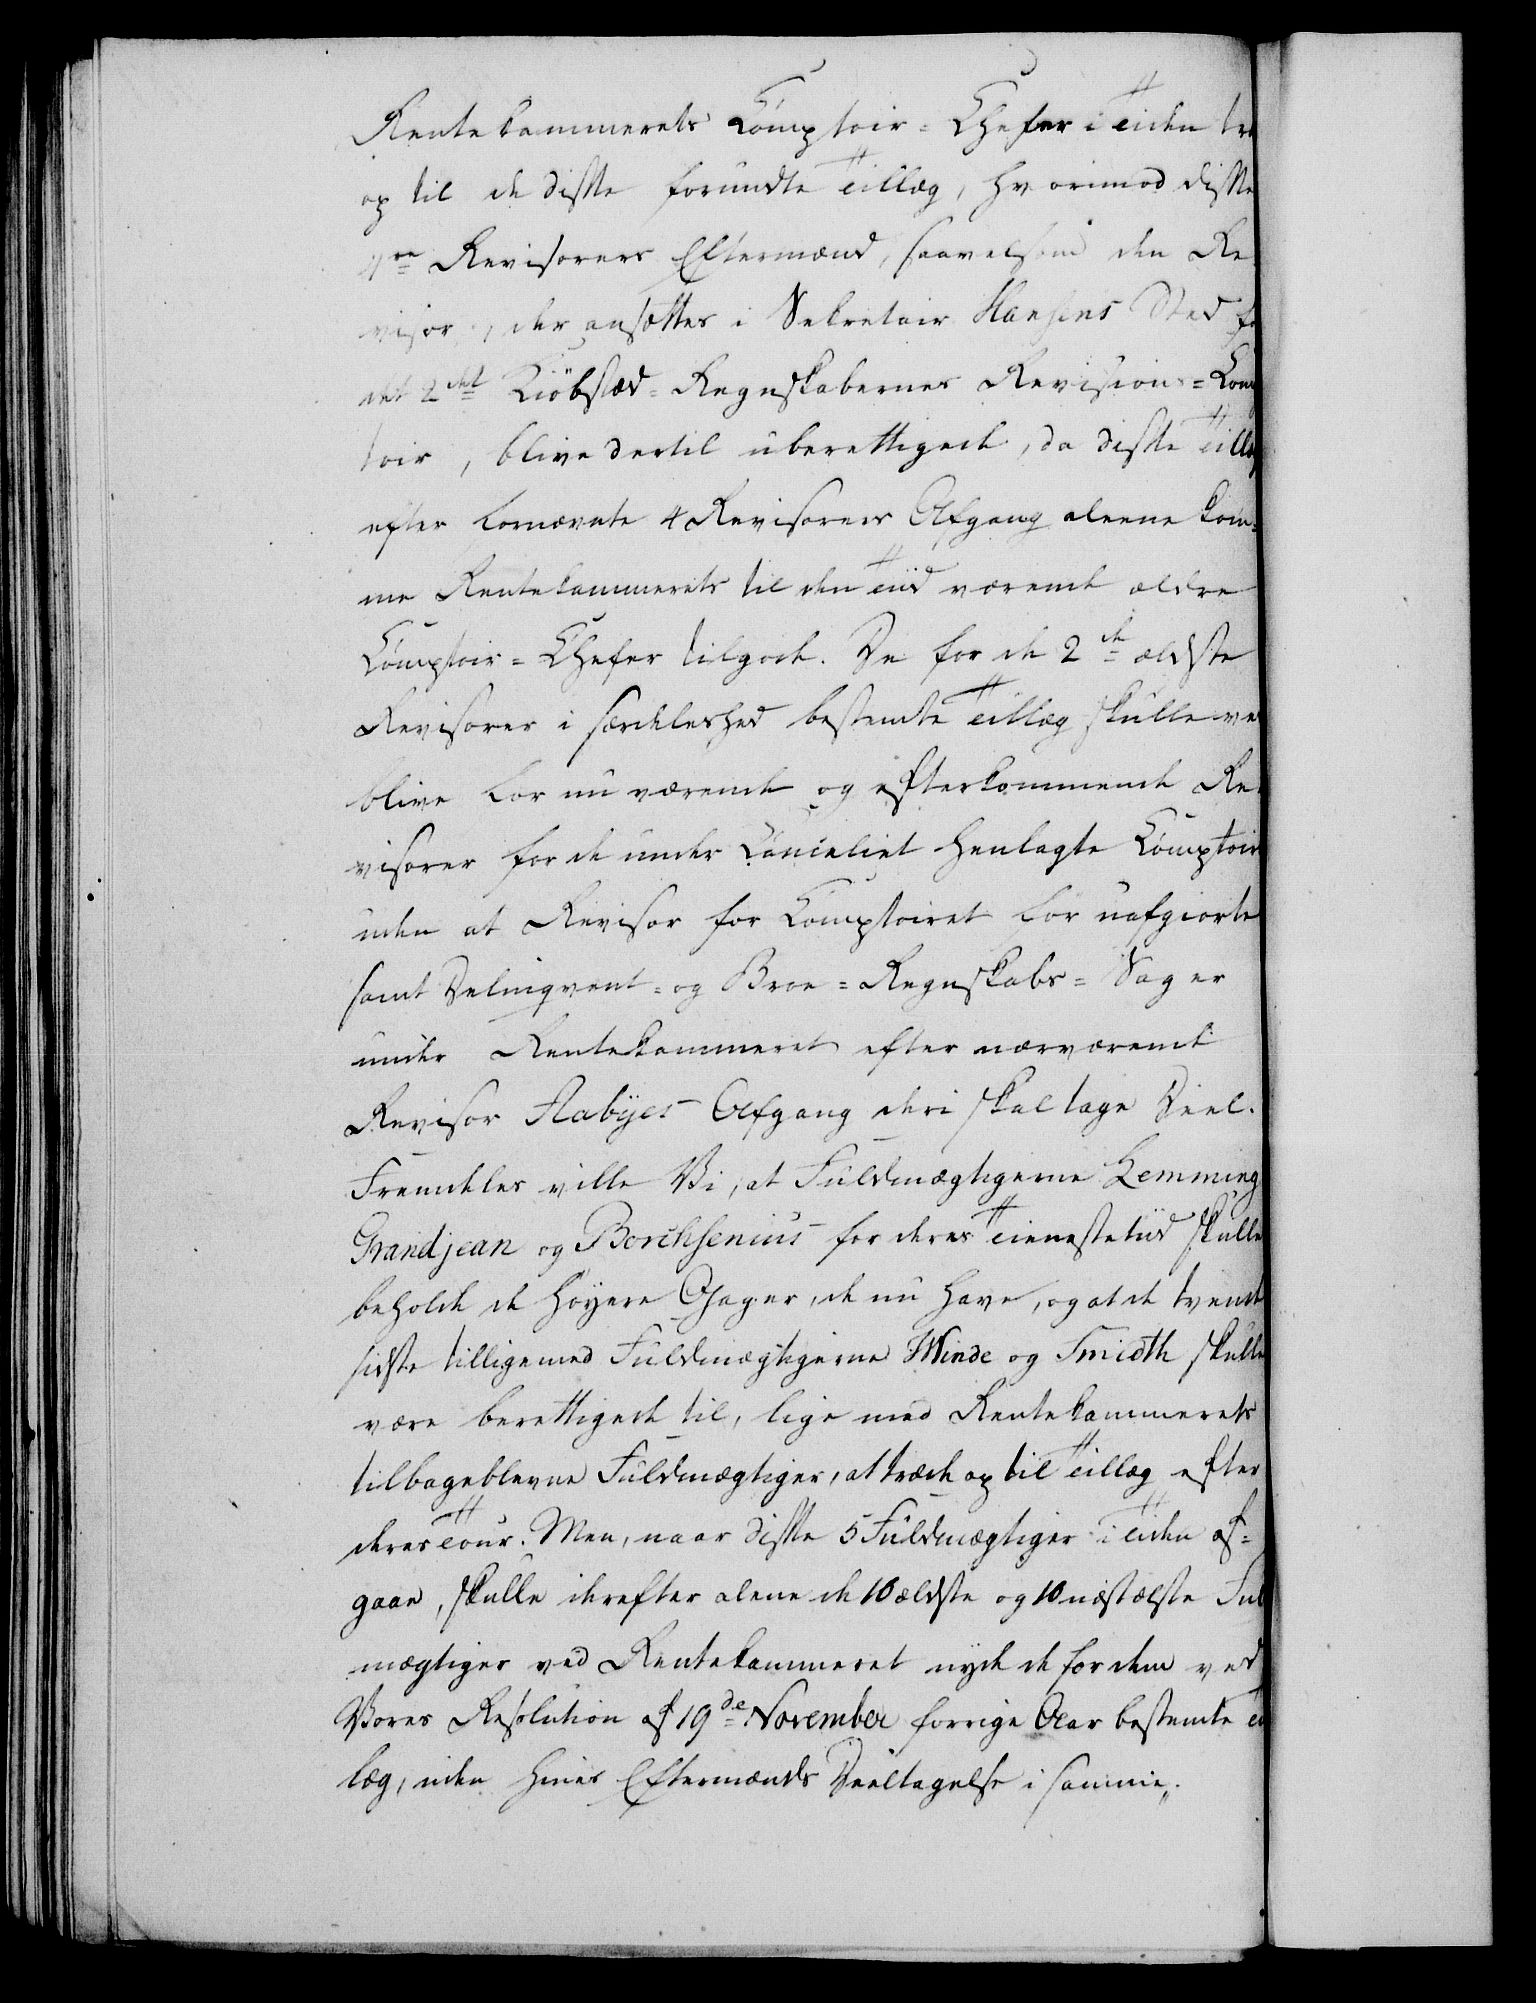 Rentekammerets Comptoir-Chefer i Tiden træ
op til de disse forundte Tillæg, hvorimod disse
4re Revisorers Eftermænd, saavelsom den Re-
visor, der ansættes i Secretair Hansens Sted fo
det 2det Kiöbstæd-Regnskabernes Revisions-Com
toir, blive dertil uberettigede, da disse Tillæg
efter fornævnte 4 Revisorers Afgang alene kom-
me Rentekammerets til den Tiid værende ældre
Comptoir-Chefer tilgode. De for de 2de ældste
Revisorer i særdeleshed bestemte Tillæg skulle ved
blive for nu værende og efterkommende Re-
visorer for de under Cancelliet henlagte Comptoir
uden at Revisor for Comptoiret for uafgiorte
samt Delinqvent- og Broe-Regnskabs-Sager
under Rentekammeret efter nærværende
Revisor Aabÿes Afgang deri skal tage Deel.
Fremdeles ville Vi, at Fuldmægtigerne Lemming
Grandjean og Borchsenius for deres Tienestetiid skulle
beholde de höyere Gager, de nu have, og at de tvende
sidste tilligemed Fuldmægtigerne Winde og Smidth skulle
være berettigede til, lige med Rentekammerets
tilbageblevne Fuldmægtiger, at træde op til Tillæg efter
deres Tour. Men, naar disse 5 Fuldmægtiger i Tiden af-
gaae, skulle derefter alene de 10 ældste og 10 næstælste Ful
mægtiger ved Rentekammeret nyde de for dem ved
Vores Resolution af 19de November forrige Aar bestemte Til
læg, uden hines Eftermænds Deeltagelse i samme„.